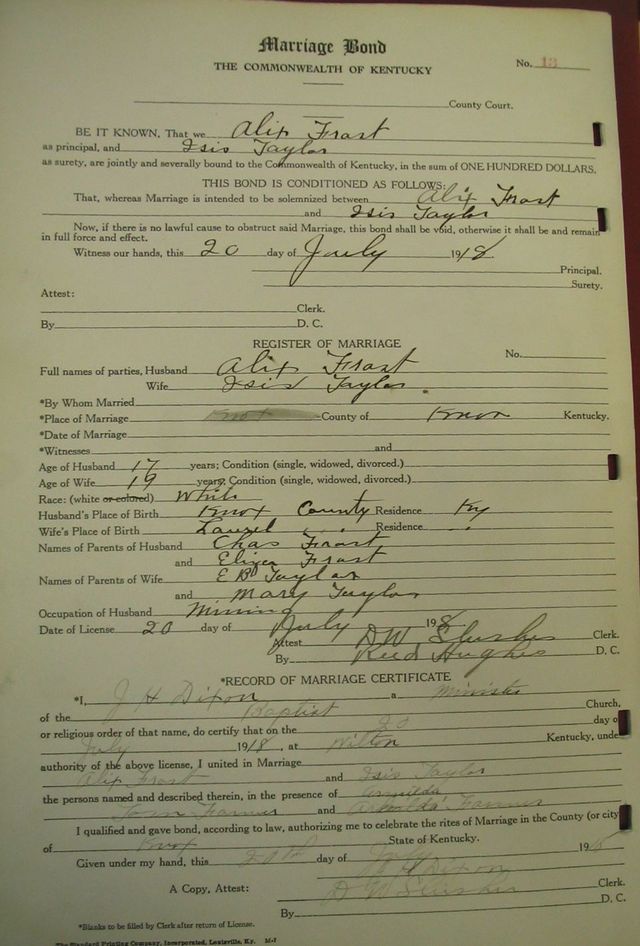 Marriage Bond
THE COMMONWEALTH OF KENTUCKY
No. 13
County Court.
BE IT KNOWN, That we Alix Frost
as principal, and Isis Taylor
as surety, are jointly and severally bound to the Commonwealth of Kentucky, in the sum of ONE HUNDRED DOLLARS.
THIS BOND IS CONDITIONED AS FOLLOWS:
That, whereas Marriage is intended to be solemnized between Alix Frost
and Isis Taylor
Now, if there is no lawful cause to obstruct said Marriage, this bond shall be void, otherwise it shall be and remain
in full force and effect.
Witness our hands, this 20 day of July 1918
Principal.
Surety.
Attest:
Clerk.
By D. C.
REGISTER OF MARRIAGE
No.
Full names of parties, Husband Alix Frost
Wife Isis Taylor
*By Whom Married
*Place of Marriage Knox County of Knox Kentucky.
*Date of Marriage
*Witnesses and
Age of Husband 17 years; Condition (single, widowed, divorced.)
Age of Wife 19 years; Condition (single, widowed, divorced.)
Race: (white or colored) White
Husband's Place of Birth Knox County Residence Ky
Wife's Place of Birth Laurel " " Residence " "
Names of Parents of Husband Chas Frost
and Eliza Frost
Names of Parents of Wife E B Taylor
and Mary Taylor
Occupation of Husband Mining
Date of License 20 day of July 1918
Attest D W Slusher Clerk.
By Reed Hughes D. C.
*RECORD OF MARRIAGE CERTIFICATE
*I, J H Dixon a Minister
of the Baptist Church,
or religious order of that name, do certify that on the 20 day of
July 1918, at Wilton Kentucky, under
authority of the above license, I united in Marriage
Alix Frost and Isis Taylor
the persons named and described therein, in the presence of
and
I qualified and gave bond, according to law, authorizing me to celebrate the rites of Marriage in the County (or city)
of Knox State of Kentucky.
Given under my hand, this 20th day of July 1918
J H Dixon
A Copy, Attest: D W Slusher Clerk.
By D. C.
*Blanks to be filled by Clerk after return of License.
The Standard Printing Company, Incorporated, Louisville, Ky. M-7